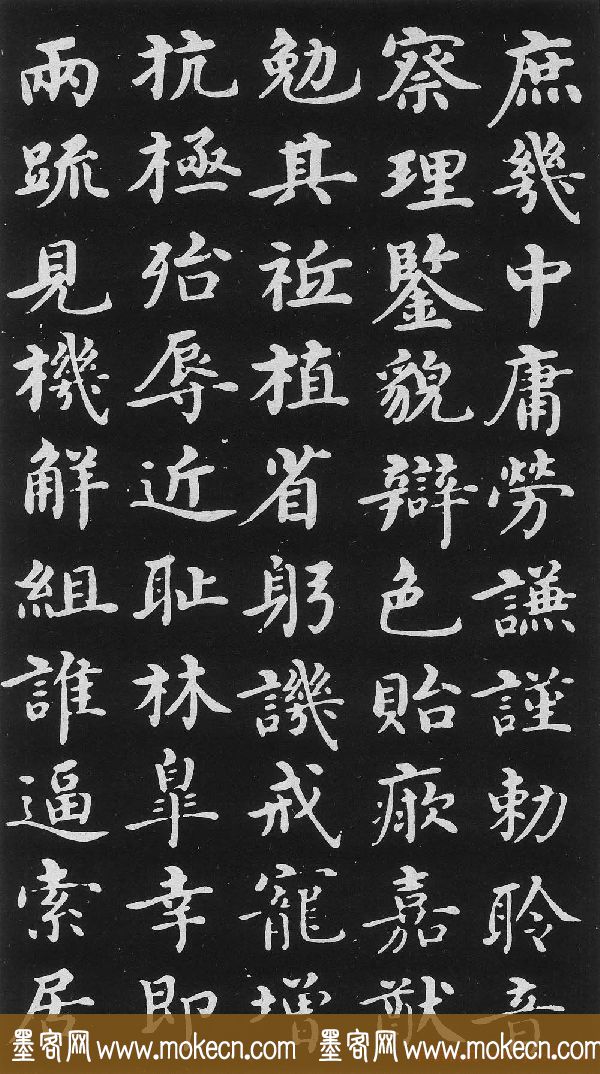 庶幾中庸勞謙謹勅聆音
察理鑒貌辯色貽厥嘉猷
勉其祗植省躬譏戒寵增
抗極殆辱近耻林皐幸即
兩疏見機解組誰逼索居
墨客网 www.mokecn.com 墨客网 www.mokecn.com